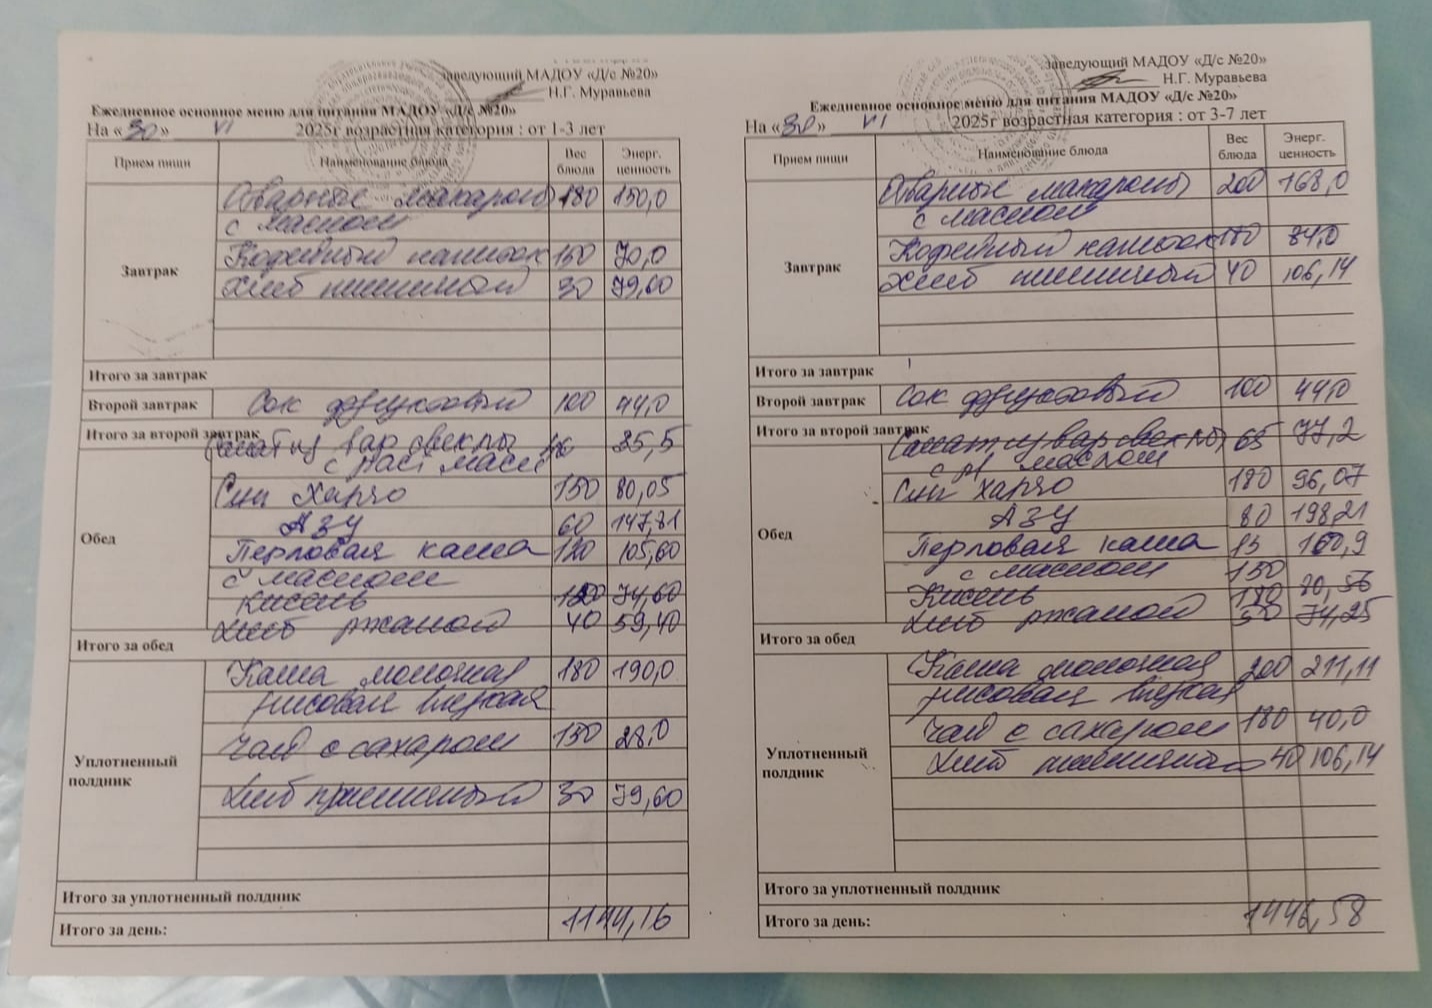 заведующий МАДОУ «Д/с №20»
Н.Г. Муравьева
Ежедневное основное меню для питания МАДОУ «Д/с №20»
На «30» VI 2025г возрастная категория : от 1-3 лет
Прием пищи Наименование блюда Вес блюда Энерг. ценность
Завтрак
Отварные макароны 180 150,0
с маслом
Кофейный напиток 150 70,0
Хлеб пшеничный 30 79,60
Итого за завтрак
Второй завтрак Сок фруктовый 100 44,0
Итого за второй завтрак
Обед
Салат из вар свеклы 35,5
с раст масл
Суп Харчо 150 80,05
Азу 60 147,81
Перловая каша 120 105,60
с маслом
Кисель 150 74,60
Хлеб ржаной 40 59,40
Итого за обед
Уплотненный полдник
Каша молочная 180 190,0
рисовая вязкая
Чай с сахаром 150 28,0
Хлеб пшеничный 30 79,60
Итого за уплотненный полдник
Итого за день: 1144,16
заведующий МАДОУ «Д/с №20»
Н.Г. Муравьева
Ежедневное основное меню для питания МАДОУ «Д/с №20»
На «30» VI 2025г возрастная категория : от 3-7 лет
Прием пищи Наименование блюда Вес блюда Энерг. ценность
Завтрак
Отварные макароны 200 168,0
с маслом
Кофейный напиток 180 84,0
Хлеб пшеничный 40 106,14
Итого за завтрак
Второй завтрак Сок фруктовый 100 44,0
Итого за второй завтрак
Обед
Салат из вар свеклы 65 77,2
с р маслом
Суп харчо 180 96,07
Азу 80 198,21
Перловая каша 15
с маслом 150
Кисель 180
Хлеб ржаной 50 74,25
Итого за обед
Уплотненный полдник
Каша молочная 200 211,11
рисовая вязкая
Чай с сахаром 180 40,0
Хлеб пшеничный 40 106,14
Итого за уплотненный полдник
Итого за день: 1446,58